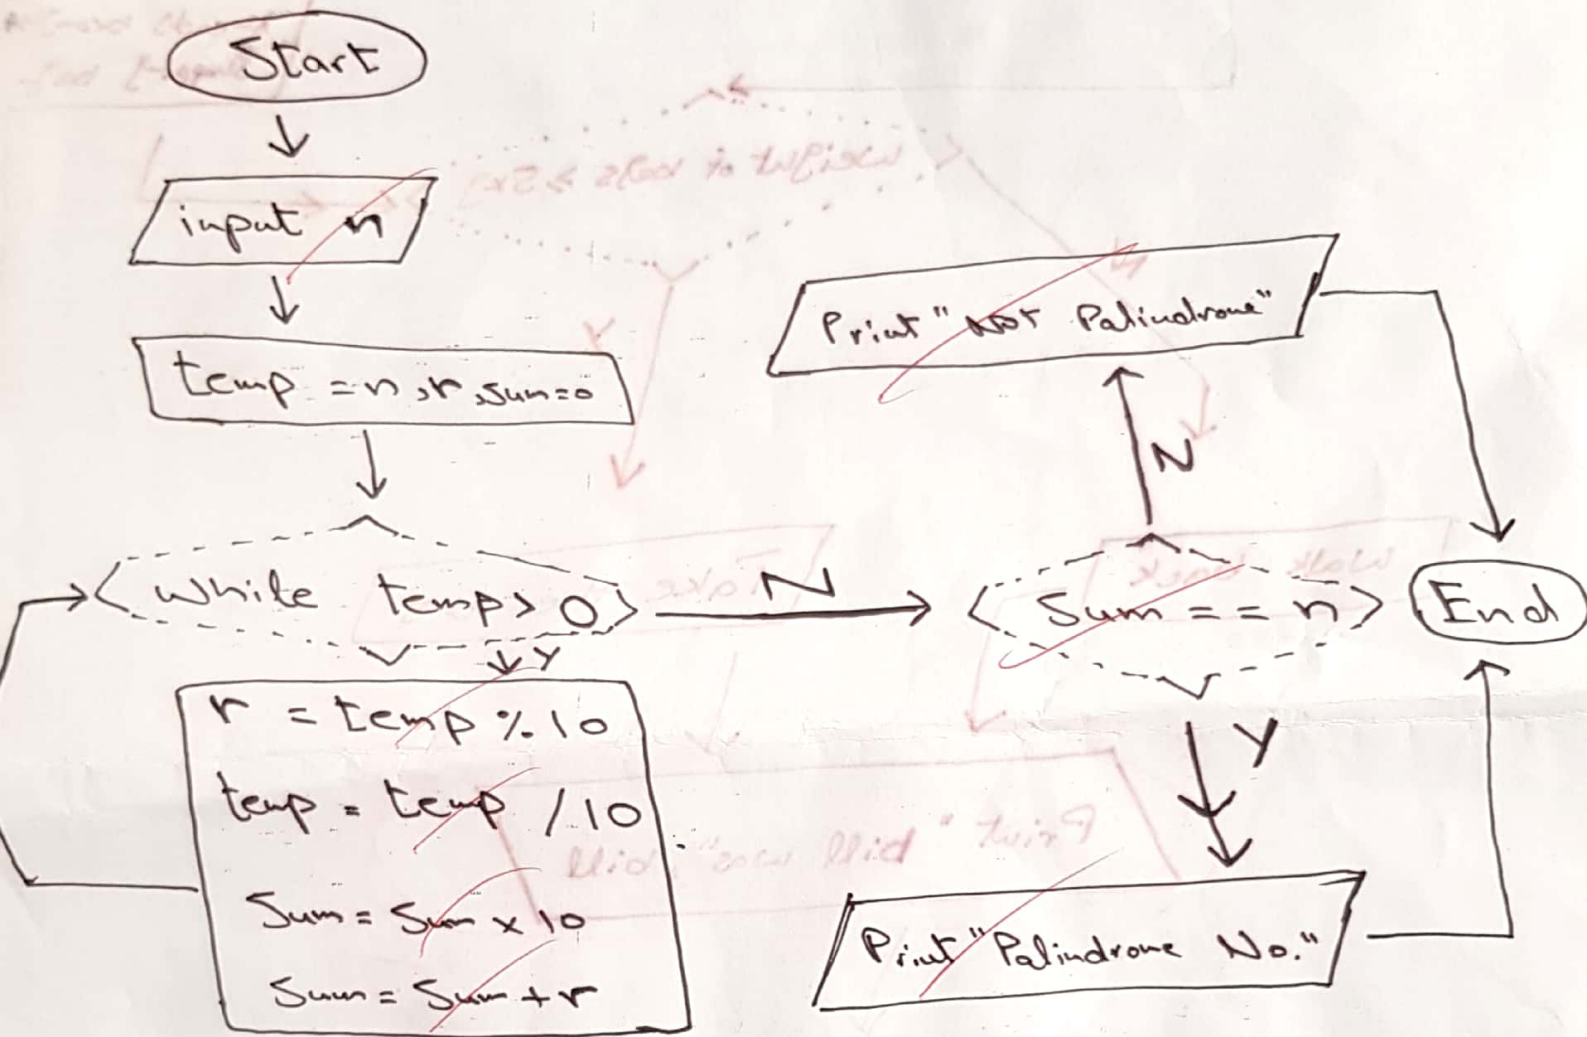 Start
input n
temp = n, r, sum=0
while temp > 0
Y
N
r = temp % 10
temp = temp / 10
Sum = Sum x 10
Sum = Sum + r
Sum == n
N
Print "Not Palindrome"
Y
Print "Palindrome No."
End
Print "bill was", bill